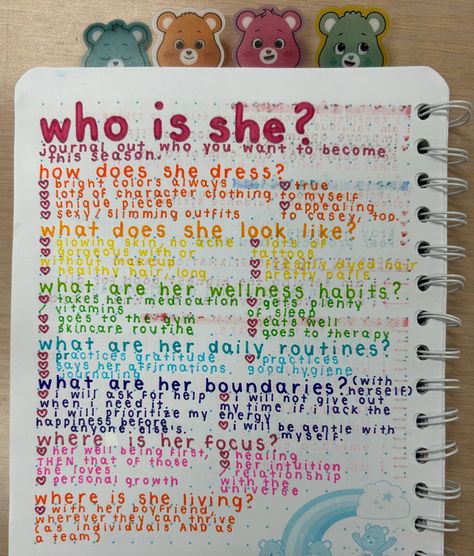 who is she?
journal out who you want to become
this season.
how does she dress?
bright colors always
lots of character clothing
unique pieces
sexy/slimming outfits
true
to myself
appealing
to casey, too.
what does she look like?
glowing skin, no acne
gorgeous with or
without makeup
healthy hair, long
lots of
tattoos
freshly dyed hair
pretty nails
what are her wellness habits?
takes her medication
/ vitamins
goes to the gym
skincare routine
gets plenty
of sleep
eats well
goes to therapy
what are her daily routines?
practices gratitude
says her affirmations.
journaling
practices
good hygiene
what are her boundaries? (with herself)
i will ask for help
when i need it
i will prioritize my
happiness before
anyone else's.
i will not give out
my time if i lack the
energy
i will be gentle with
myself.
where is her focus?
her well being first,
THEN that of those
she loves
personal growth
healing
her intuition
/ relationship
with the
universe
where is she living?
with her boyfriend,
wherever they can thrive
(as individuals AND as
a team)